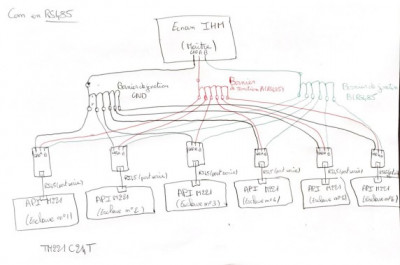 Com en RS485
Ecran IHM
(Maître)
Bornier de jonction
GND
Bornier
de jonction A(RS485)
Bornier de jonction
B(RS485)
RJ45 (port série)
RJ45 (port série)
RJ45 (port série)
RJ45 (port série)
RJ45 (port série)
RJ45 (port série)
API M221
(Esclave n°1)
API M221
(Esclave n°2)
API M221
(Esclave n°3)
API M221
(Esclave n°4)
API M221
API M221
TM221C24T